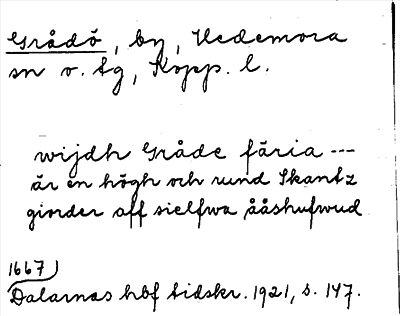 Grådö, by, Hedemora
sn o. tg, Kopp. l.
wijdh Gråde färia ---
är en högh och rund Skantz
giorder aff sielfwa ååshufwud
1667)
Dalarnas hbf tidskr. 1921, s. 147.